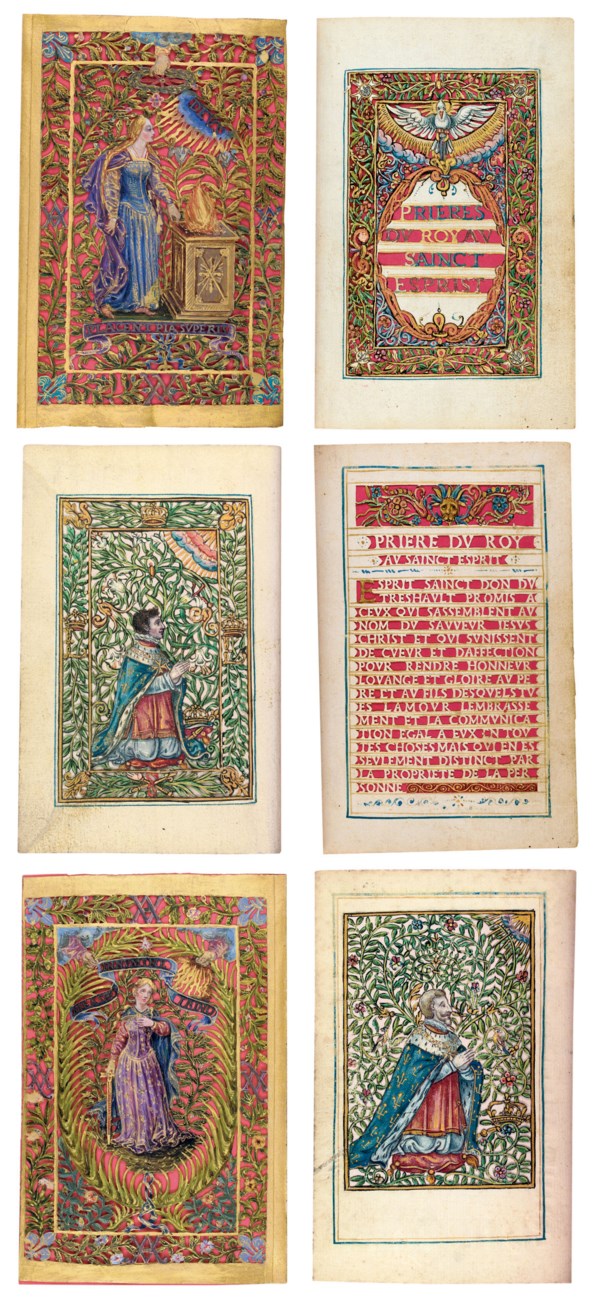 PRIERES
DV ROY AV
SAINCT
ESPRIT
PRIERE DV ROY
AV SAINCT ESPRIT
ESPRIT SAINCT DON DV
TRESHAVLT PROMIS A
CEVX QVI SASSEMBLENT AV
NOM DV SAVVEVR IESVS
CHRIST ET QVI SVNISSENT
DE CVEVR ET DAFFECTION
POVR RENDRE HONNEVR
LOVANGE ET GLOIRE AV PE
RE ET AV FILS DESQVELS TV
ES LAMOVR LEMBRASSE
MENT ET LA COMMVNICA
TION EGAL A EVX EN TOV
TES CHOSES MAIS QVI EN ES
SEVLEMENT DISTINCT PAR
LA PROPRIETE DE LA PER
SONNE